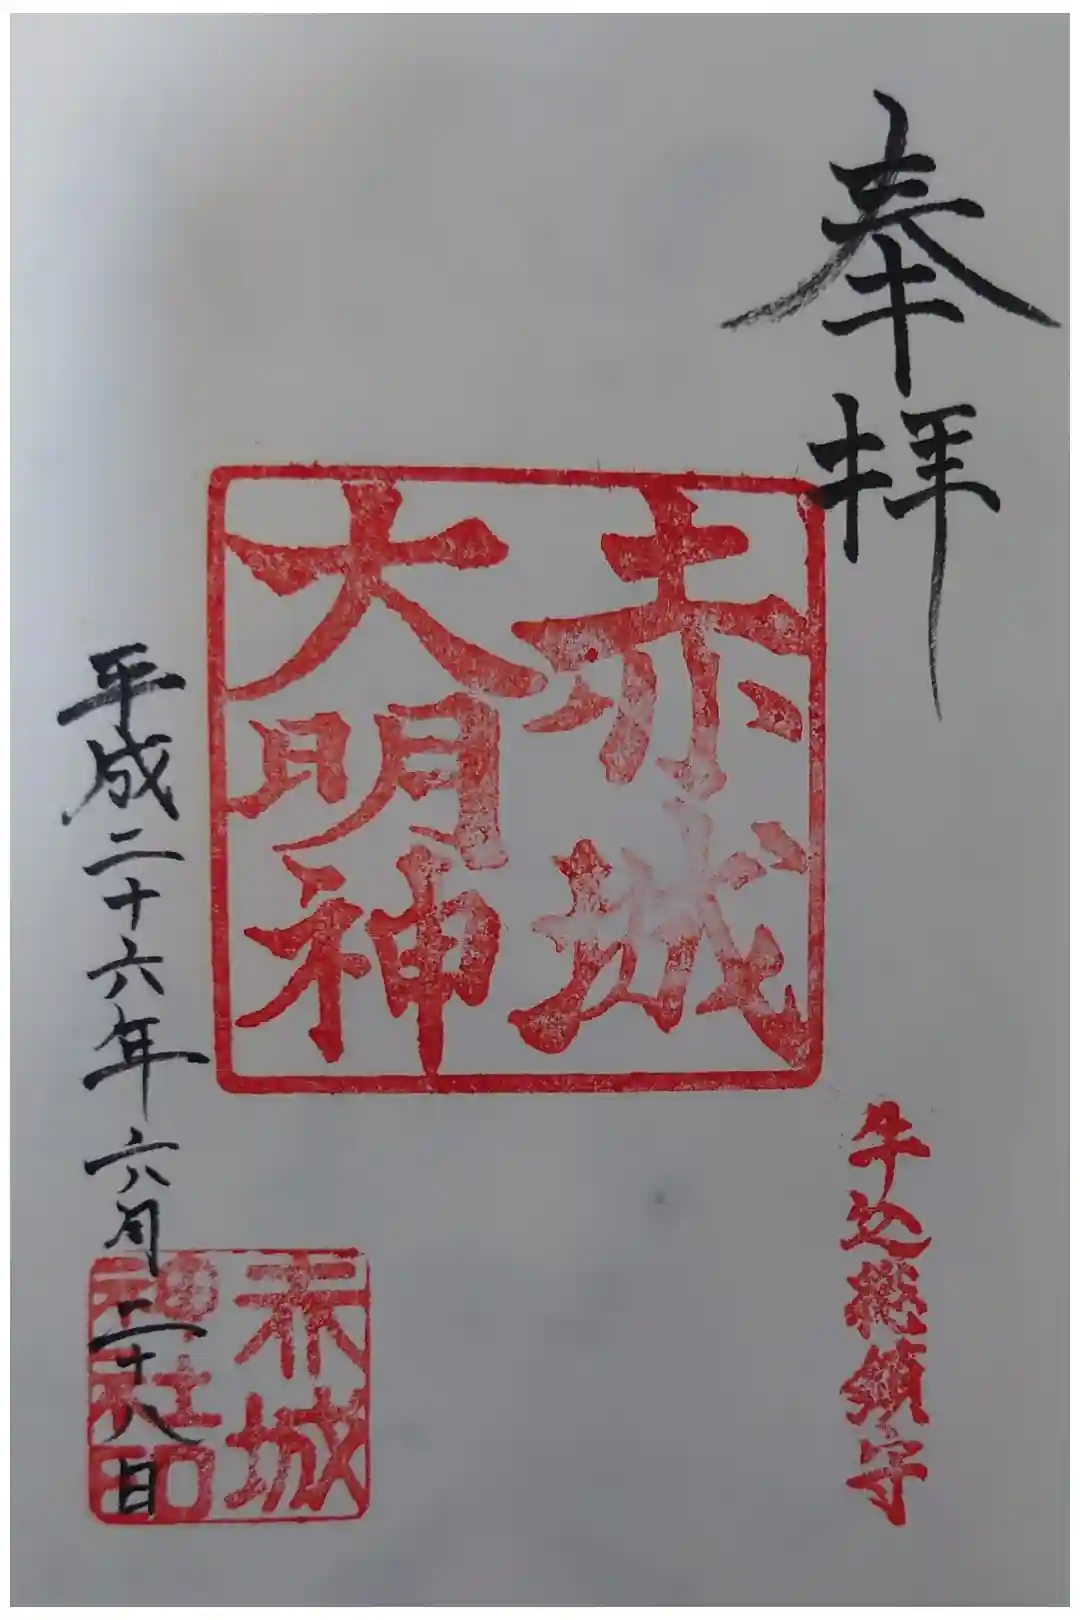 奉拝
牛込総鎮守
赤城
大明神
平成二十六年六月二十八日
赤城
神社印